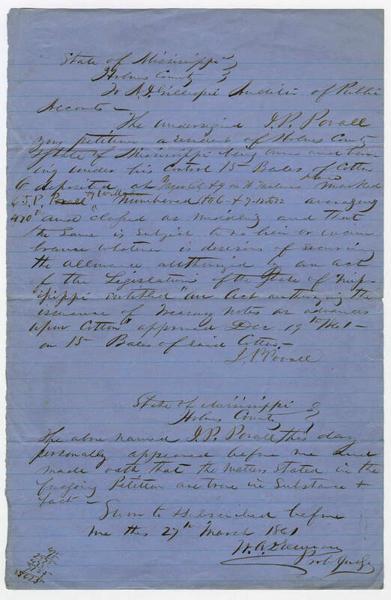 State of Mississippi
Holmes County
To A. J. Gillespie Auditor of Public
Accounts –
The undersigned J. P. Povall
your petitioner a resident of Holmes County
State of Mississippi being owner and having
under his control 15 Bales of Cotton
deposited at marked
J. P. Numbered averaging
470 and classed as middling and that
the same is subject to no lien or incum
brance whatever is desirous of securing
the allowance authorized in an act
of the Legislature of the State of Missi
ssippi entitled an Act authorizing the
issuance of Treasury notes as advances
upon Cotton approved Dec 19th 1861 –
on 15 Bales of said Cotton –
J. P. Povall
State of Mississippi
Holmes County
The above named J. P. Povall this day
personally appeared before me and
made oath that the matters stated in the
foregoing Petition are true in Substance &
fact –
Sworn to & Subscribed before
me this 27th March 1861
Judge